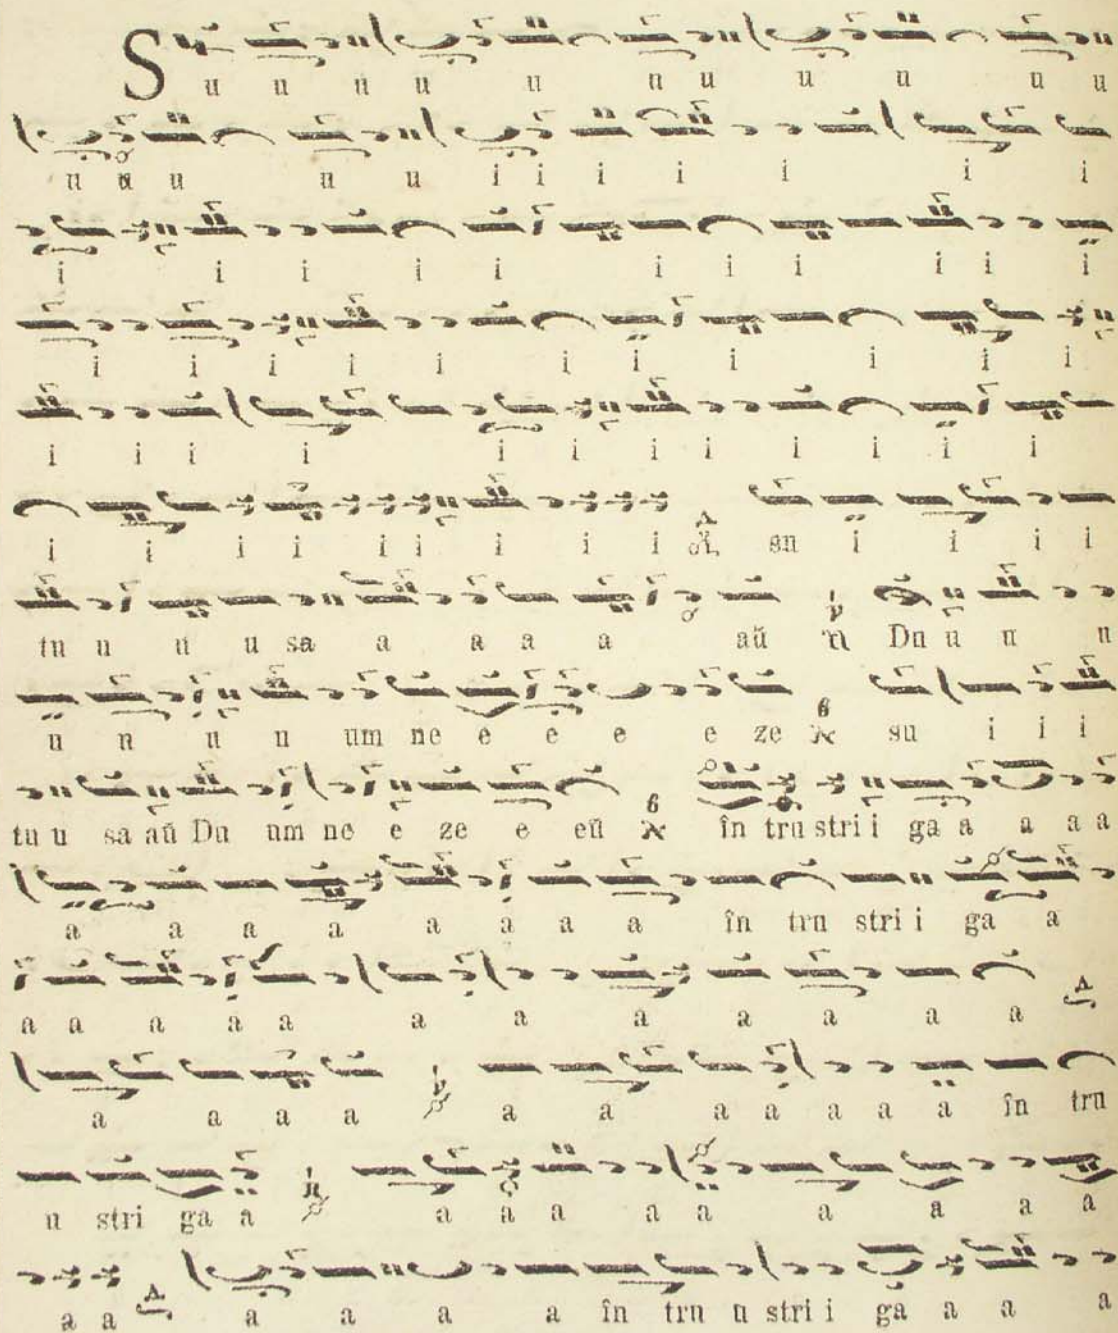 S u u u u u u u u u u u
u u u u u i i i i i i i
i i i i i i i i i i i i
i i i i i i i i i i i
i i i i i i i i i i i i
i i i i i i i i i su i i i i
tu u u u sa a a a a aŭ Du u u u
u u u u um ne e e e e ze su i i i
tu u sa aŭ Du um ne e ze e eŭ în tru stri i ga a a a a
a a a a a a a a în tru stri i ga a
a a a a a a a a a a a a
a a a a a a a a a a a în tru
u stri ga a a a a a a a a a a
a a a a a a în tru u stri i ga a a a